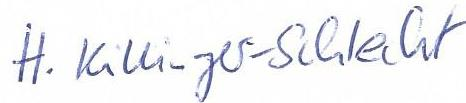 H. Killinger-Schlecht